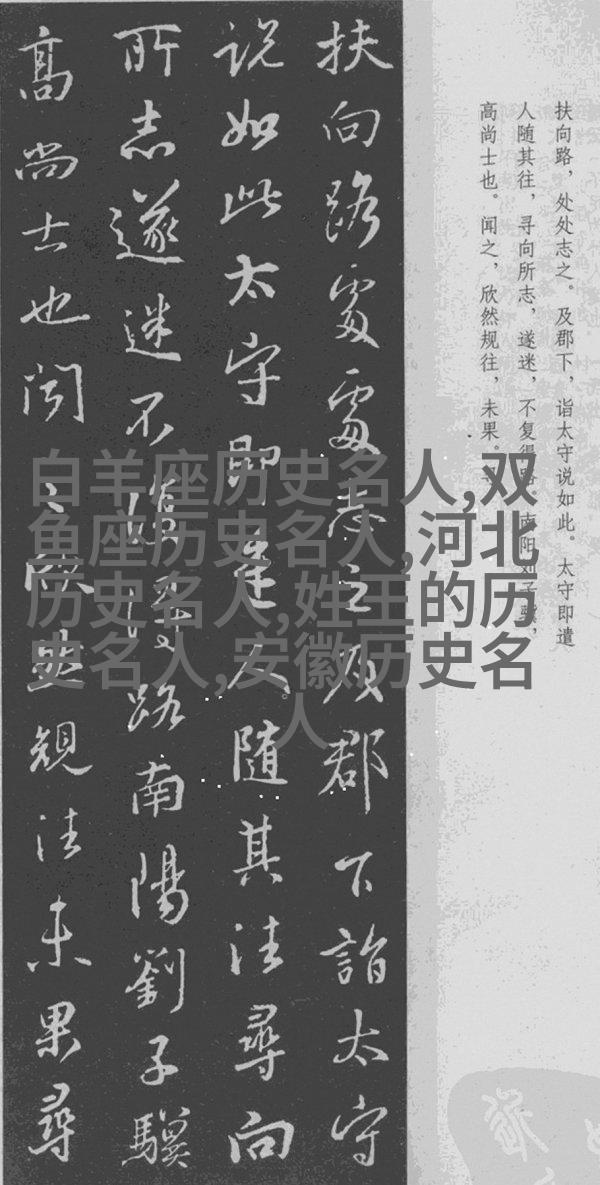 扶向路處處志之及郡下詣太守
说如此太守即遣人随其往尋向
所志遂迷不復得路南陽劉子驥
高尚士也闻之欣然規往未果尋
扶向路，处处志之。及郡下，诣太守说如此。太守即遣
人随其往，寻向所志，遂迷，不复得路。南阳刘子骥，
高尚士也。闻之，欣然规往，未果。寻
白羊座历史名人,双
鱼座历史名人,河北
历史名人,姓王的历
史名人,安徽历史名
人